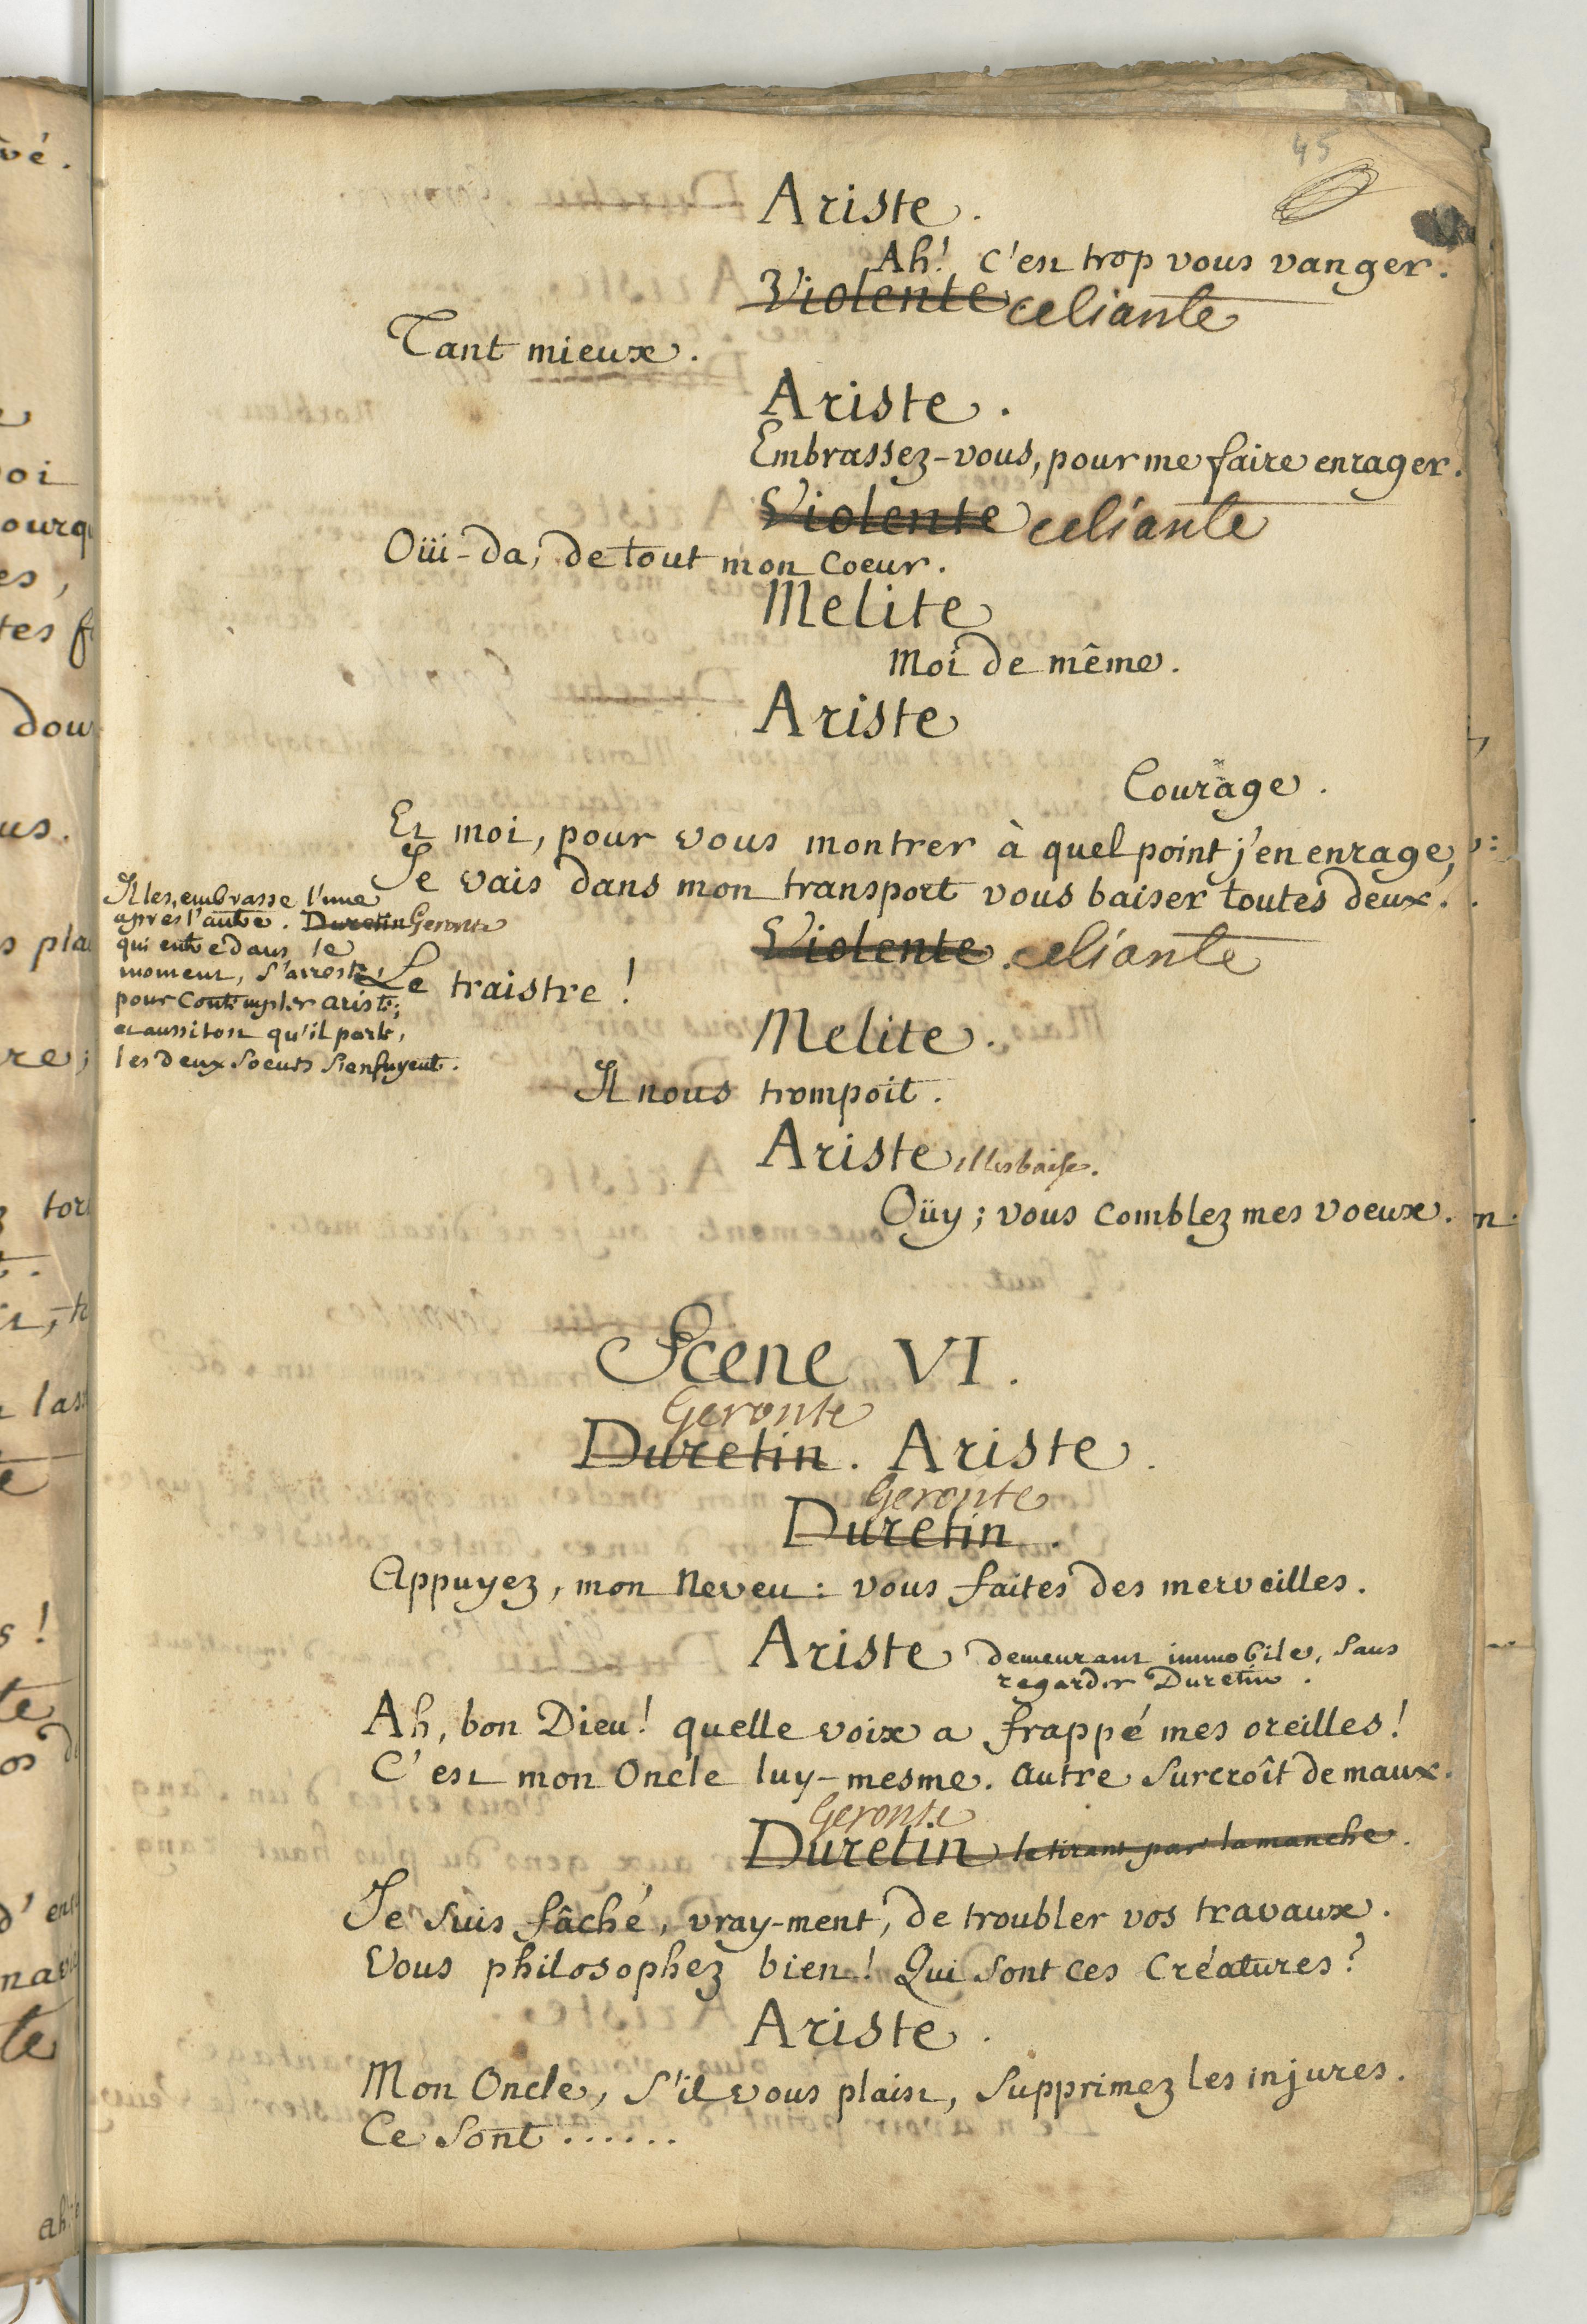 45
Ariste.
Ah! c'est trop vous vanger.
Violente celiante
Tant mieux.
Ariste.
Embrassez-vous, pour me faire enrager.
Violente celiante
Oüi-da, de tout mon coeur.
Melite
Moi de même.
Ariste
Courage.
Et moi, pour vous montrer à quel point j'en enrage,
Je vais dans mon transport vous baiser toutes deux.
Il les embrasse l'une
apres l'autre. Duretin Geronte
qui entre dans le
moment, s'arreste
pour contempler Ariste;
et aussitost qu'il parle,
les deux soeurs s'enfuyent.
Violente. celiante
Le traistre!
Melite.
Il nous trompoit.
Ariste il les baise.
Oüy; vous comblez mes voeux.
Scene VI.
Geronte
Duretin. Ariste.
Geronte
Duretin.
Appuyez, mon Neveu: vous faites des merveilles.
Ariste demeurant immobile, sans
regarder Duretin.
Ah, bon Dieu! quelle voix a frappé mes oreilles!
C'est mon Oncle luy-mesme. autre surcroît de maux.
Geronte
Duretin le tirant par la manche.
Je suis fâché, vray-ment, de troubler vos travaux.
Vous philosophez bien! Qui sont ces Créatures?
Ariste.
Mon Oncle, s'il vous plaist, supprimez les injures.
Ce sont......